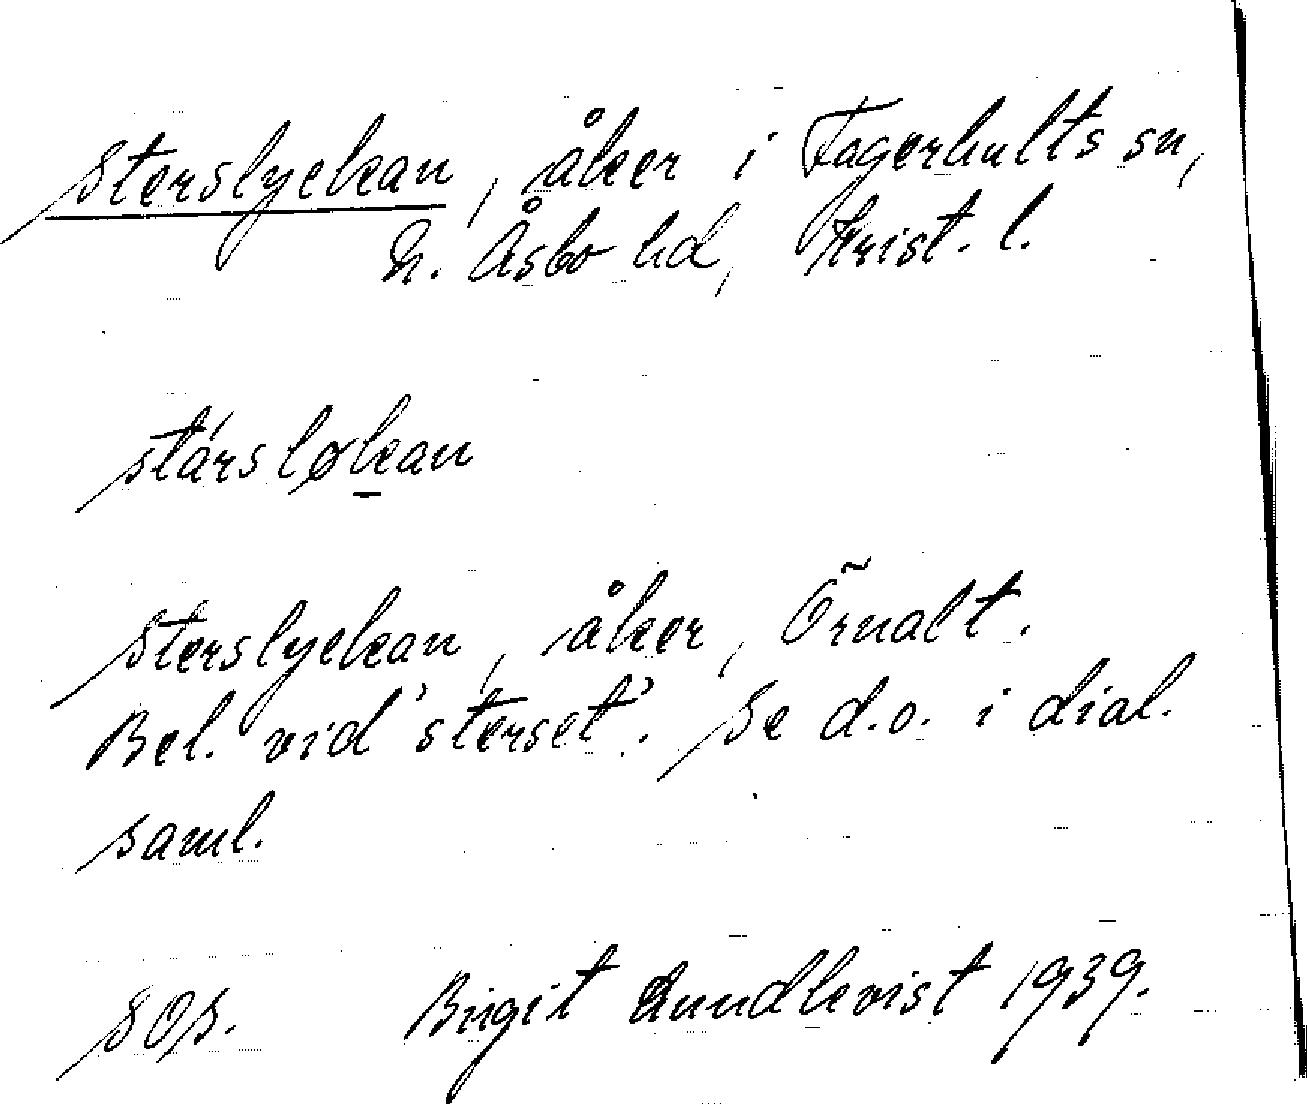 Sterslyckan, åker i Fagerhults sn,
N. Åsbo hd, Krist. l.
stársløkan
Sterslyckan, åker, Örnalt.
Bel. vid 'sterset'. Se d.o. i dial.
saml.
SOS. Birgit Lundkvist 1939.